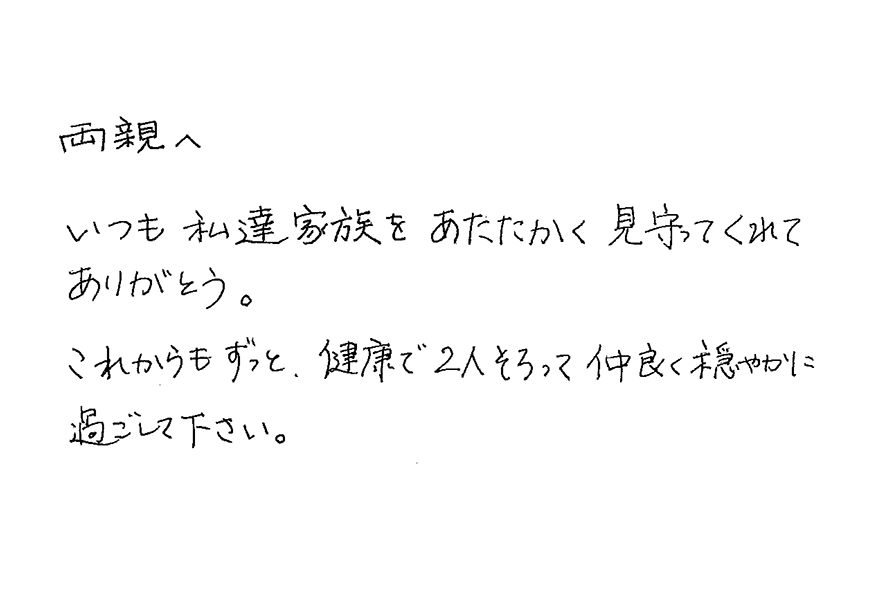 両親へ
いつも私達家族をあたたかく見守ってくれて
ありがとう。
これからもずっと、健康で2人そろって仲良く穏やかに
過ごして下さい。